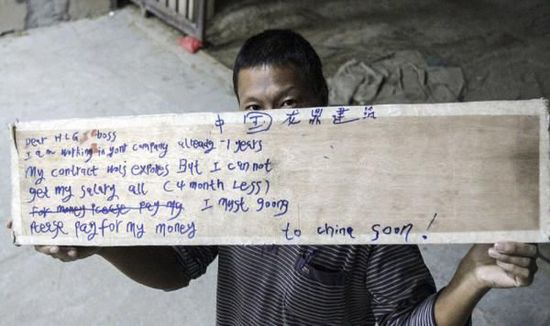 中国龙鼎建筑
Dear HLG boss
I am working in your company already -1 years
My contract was expores But I can not
get my salary all (4 month Less)
for money Please pay my I must goong
Please pay for my money to china soon!